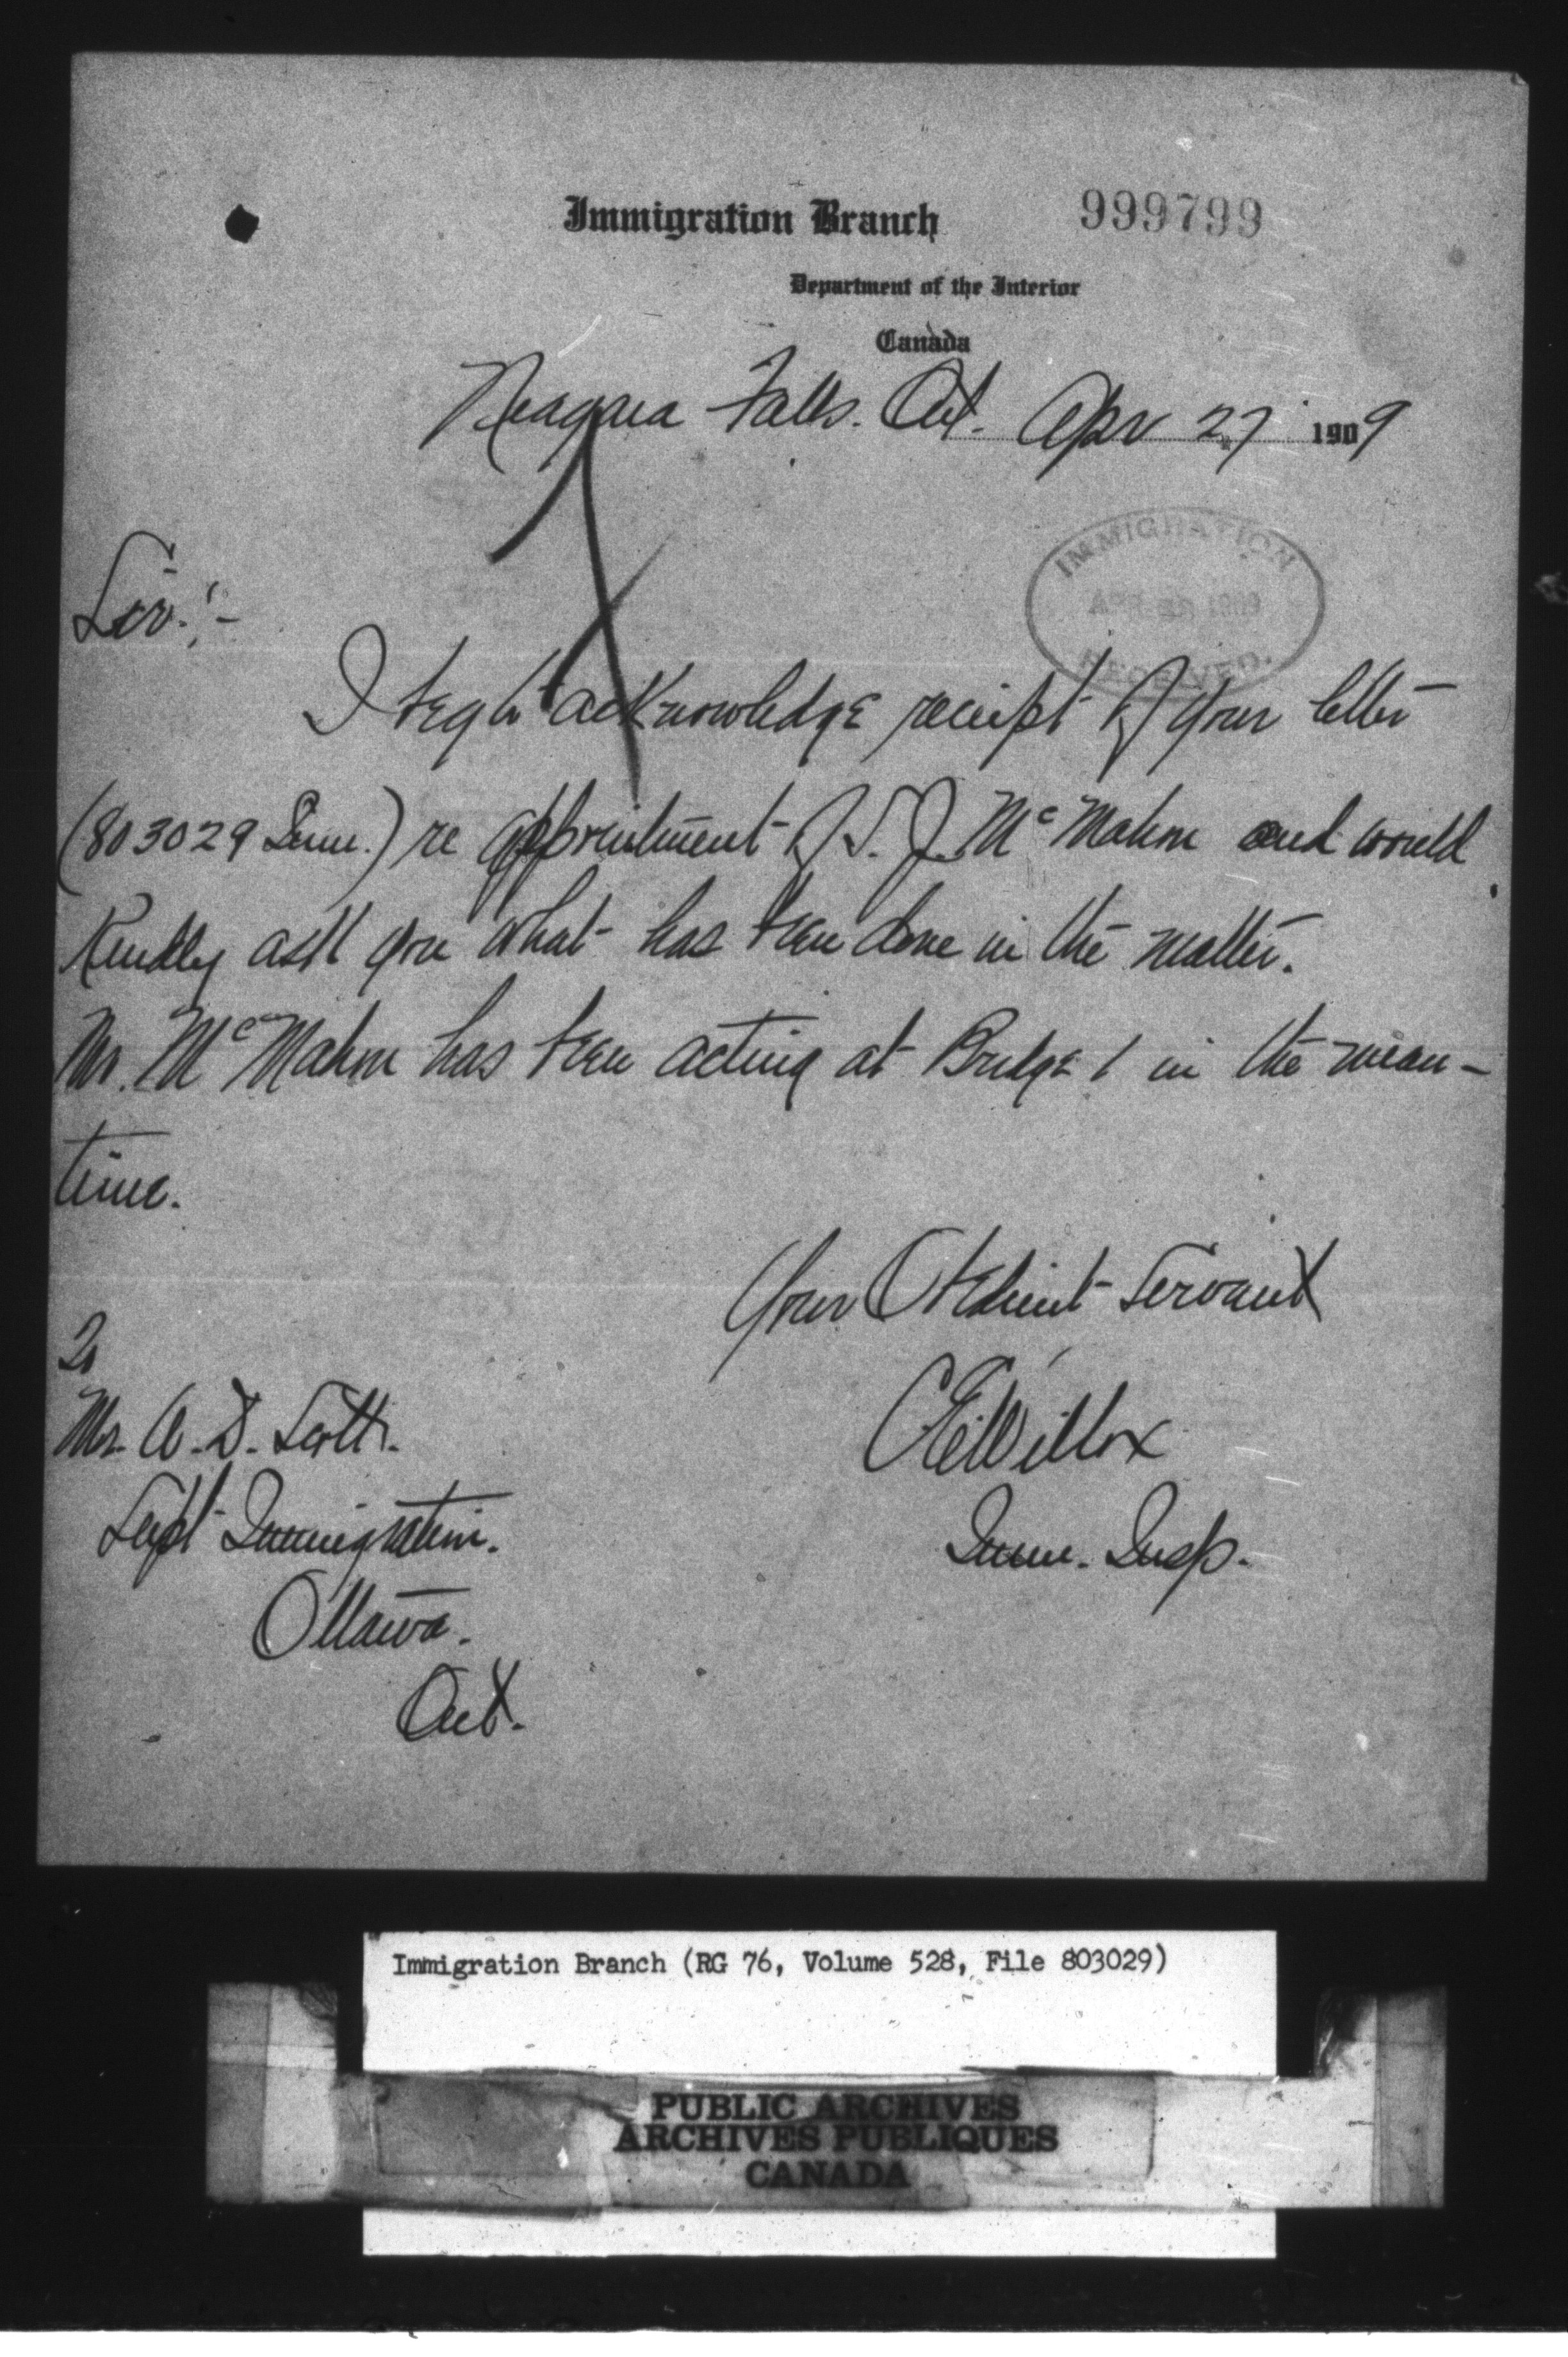 Immigration Branch 999799
Department of the Interior
Canada
Niagara Falls. Ont. Apr 27 1909
IMMIGRATION
APR 1909
RECEIVED.
Sir:-
I beg to acknowledge receipt of your letter
(803029 Imm.) re appointment of S. J. McMahon and would
kindly ask you what has been done in the matter.
Mr. McMahon has been acting at Bridge 1 in the mean-
time.
Your Obedient Servant
To
Mr. W. D. Scott.
C E Willox
Supt Immigration.
Imm. Insp.
Ottawa.
Ont.
Immigration Branch (RG 76, Volume 528, File 803029)
PUBLIC ARCHIVES
ARCHIVES PUBLIQUES
CANADA